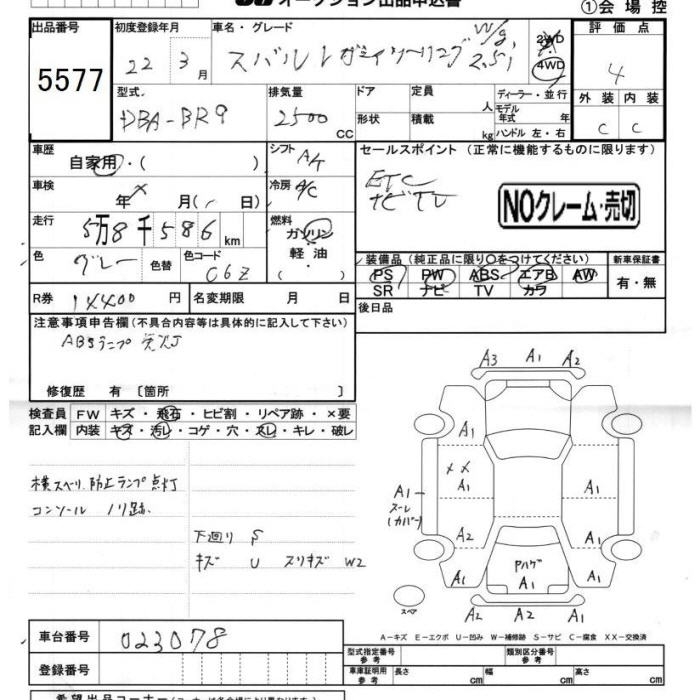 オークション出品申込書
①会場控
出品番号
5577
初度登録年月
22年3月
車名・グレード
スバル レガシィツーリングW/g 2.5i
2WD
4WD
評価点
4
外装 内装
C C
型式
DBA-BR9
排気量
2500 CC
ドア
形状
定員 人
積載 kg
ディーラー・並行
モデル年式 年
ハンドル 左・右
車歴
自家用・( )
シフト
A/T
セールスポイント (正常に機能するものに限ります)
ETC
ナビTV
NOクレーム・売切
車検
年 月( 日)
冷房
A/C
走行
5万8千586km
燃料
ガソリン
軽油
( )
色
グレー
色替
色コード
C6Z
装備品(純正品に限り○をつけてください)
PS PW ABS エアB AW
SR ナビ TV カワ
新車保証書
有・無
R券
14400円
名変期限 月 日
後日品
注意事項申告欄(不具合内容等は具体的に記入して下さい)
ABSランプ 点灯
修復歴 有 [箇所 ]
検査員
記入欄
FW キズ・飛石・ヒビ割・リペア跡・×要
内装 キズ・汚レ・コゲ・穴・スレ・キレ・破レ
横スベリ防止ランプ点灯
コンソール ノリ跡
下廻り S
キズ U スリキズ W2
A3 A1 A2
A1
XX
A1
A1
A1
スーレ
(カバー)
A2
A1
A1
PハゲA1
A1
A2 A2 A1
スペア
A-キズ E-エクボ U-凹み W-補修跡 S-サビ C-腐食 XX-交換済
車台番号
023078
登録番号
型式指定番号
参考
類別区分番号
参考
車庫証明用
参考
長さ cm
幅 cm
高さ cm
希望出品コーナー